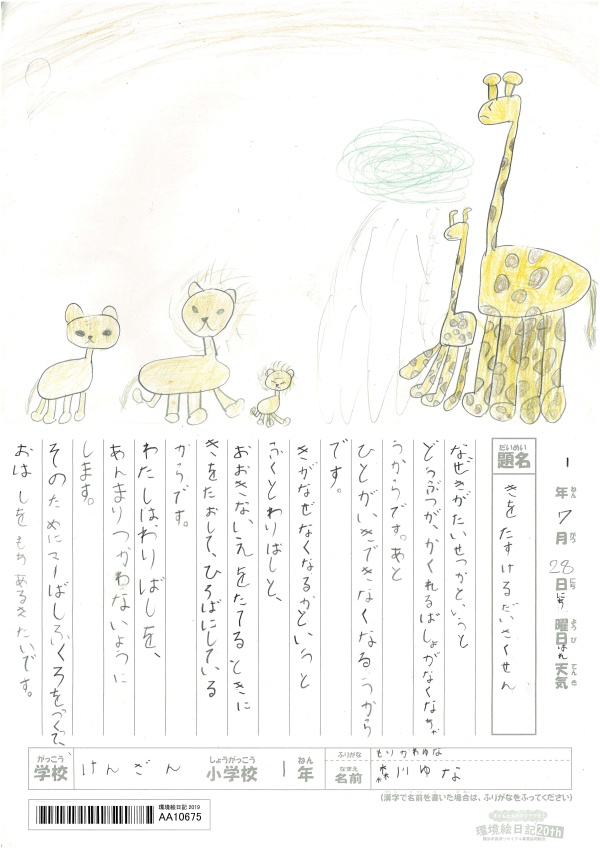 1年7月28日にち曜日はれ天気
ねん がつ にち ようび てんき
だいめい
題名
きをたすけるだいさくせん
なぜきがたいせつかというと
どうぶつが、かくれるばしょがなくなちゃ
うからです。あと
ひとが、いきできなくなるうから
です。
きがなぜなくなるかというと
ふくとわりばしと、
おおきないえをたてるときに
きをたおして、ひろばにしている
からです。
わたしはわりばしを、
あんまりつかわないように
します。
そのためにマーばしふくろをつくて、
おはしをもちあるきたいです。
がっこう
学校
けんざん
しょうがっこう
小学校
1
ねん
年
ふりがな
もりかわゆな
なまえ
名前
森川ゆな
(漢字で名前を書いた場合は、ふりがなをふってください)
環境絵日記2019
AA10675
環境絵日記20th